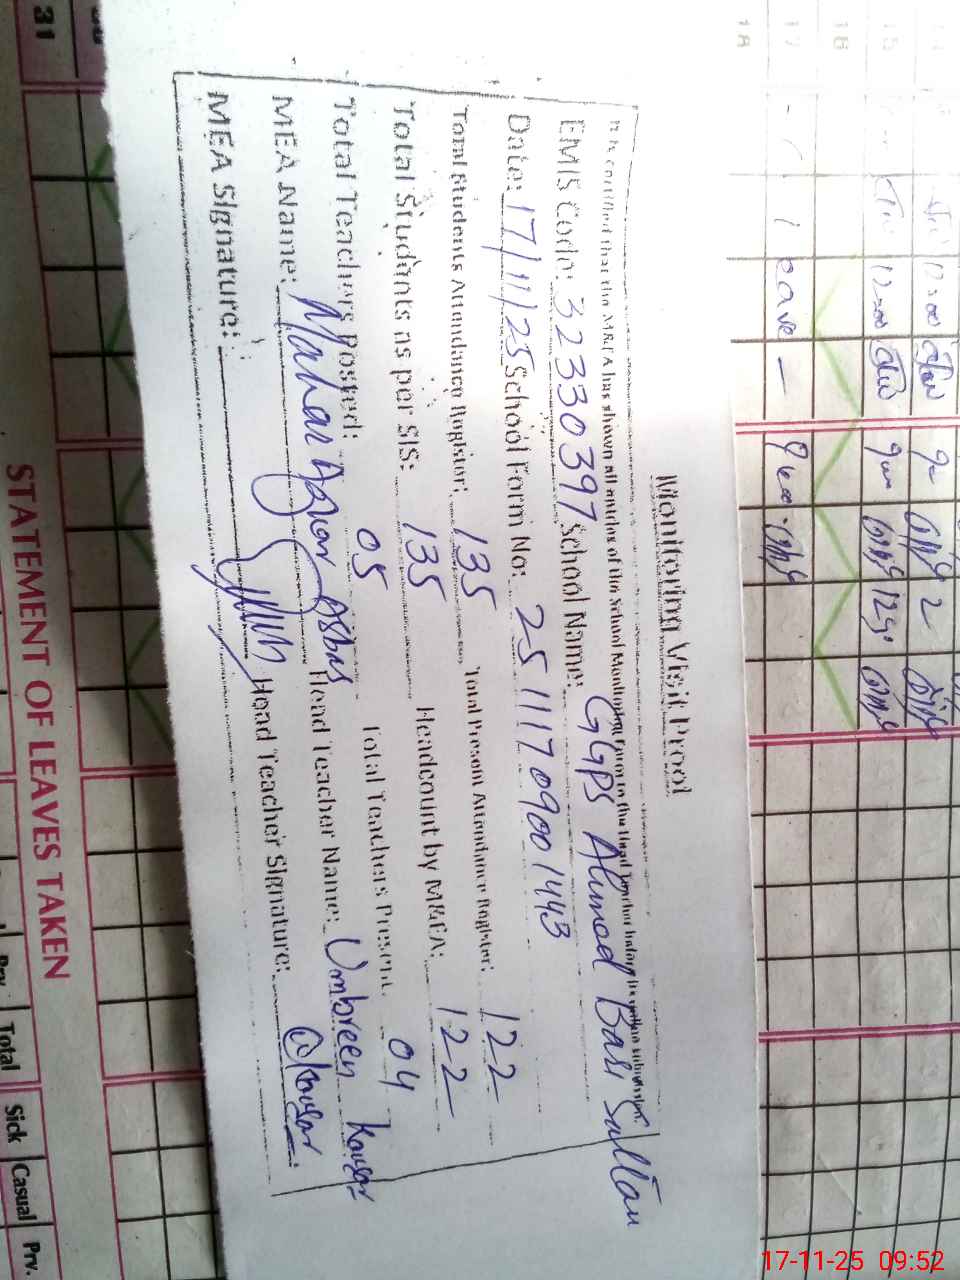 Monitoring Visit Proof
It is certified that the M&EA has shown all entries of the School Monitoring Form to the Head Teacher before its online submission.
EMIS Code: 32330397 School Name: GGPS Ahmed Basi Sultan
Date: 17/11/25 School Form No: 2511170900 1443
Total Students Attendance Register: 135 Total Present Attendance Register: 122
Total Students as per SIS: 135 Headcount by M&EA: 122
Total Teachers Posted: 05 Total Teachers Present: 04
MEA Name: Mahar Head Teacher Name: Umbreen Kousar
MEA Signature: Head Teacher Signature: Kousar
STATEMENT OF LEAVES TAKEN
Total Sick Casual Prv.
31
14
15
16
17 - Leave -
18
17-11-25 09:52